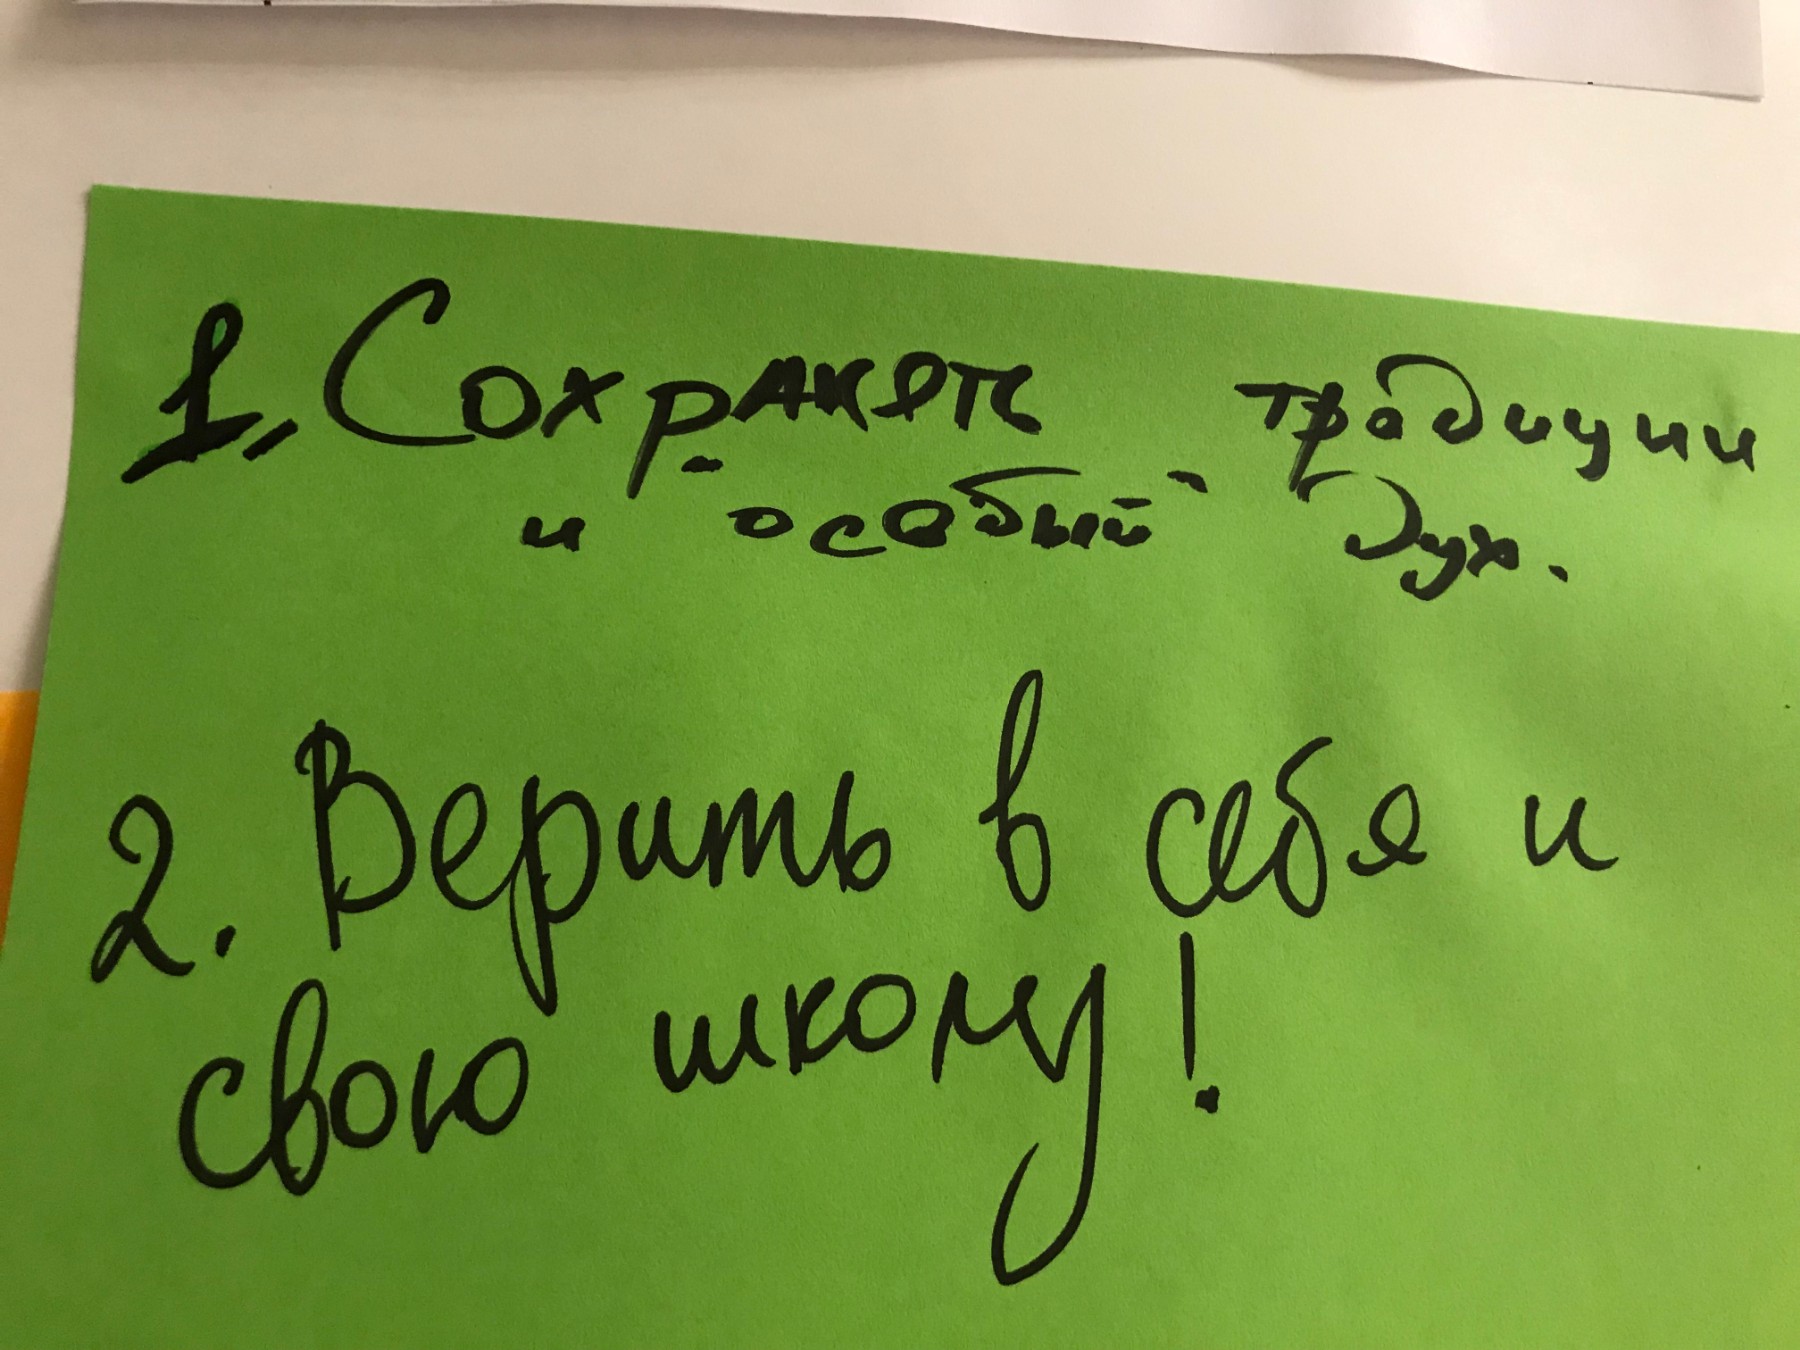 1. Сохранять традиции
и "особый" дух.
2. Верить в себя и
свою школу!